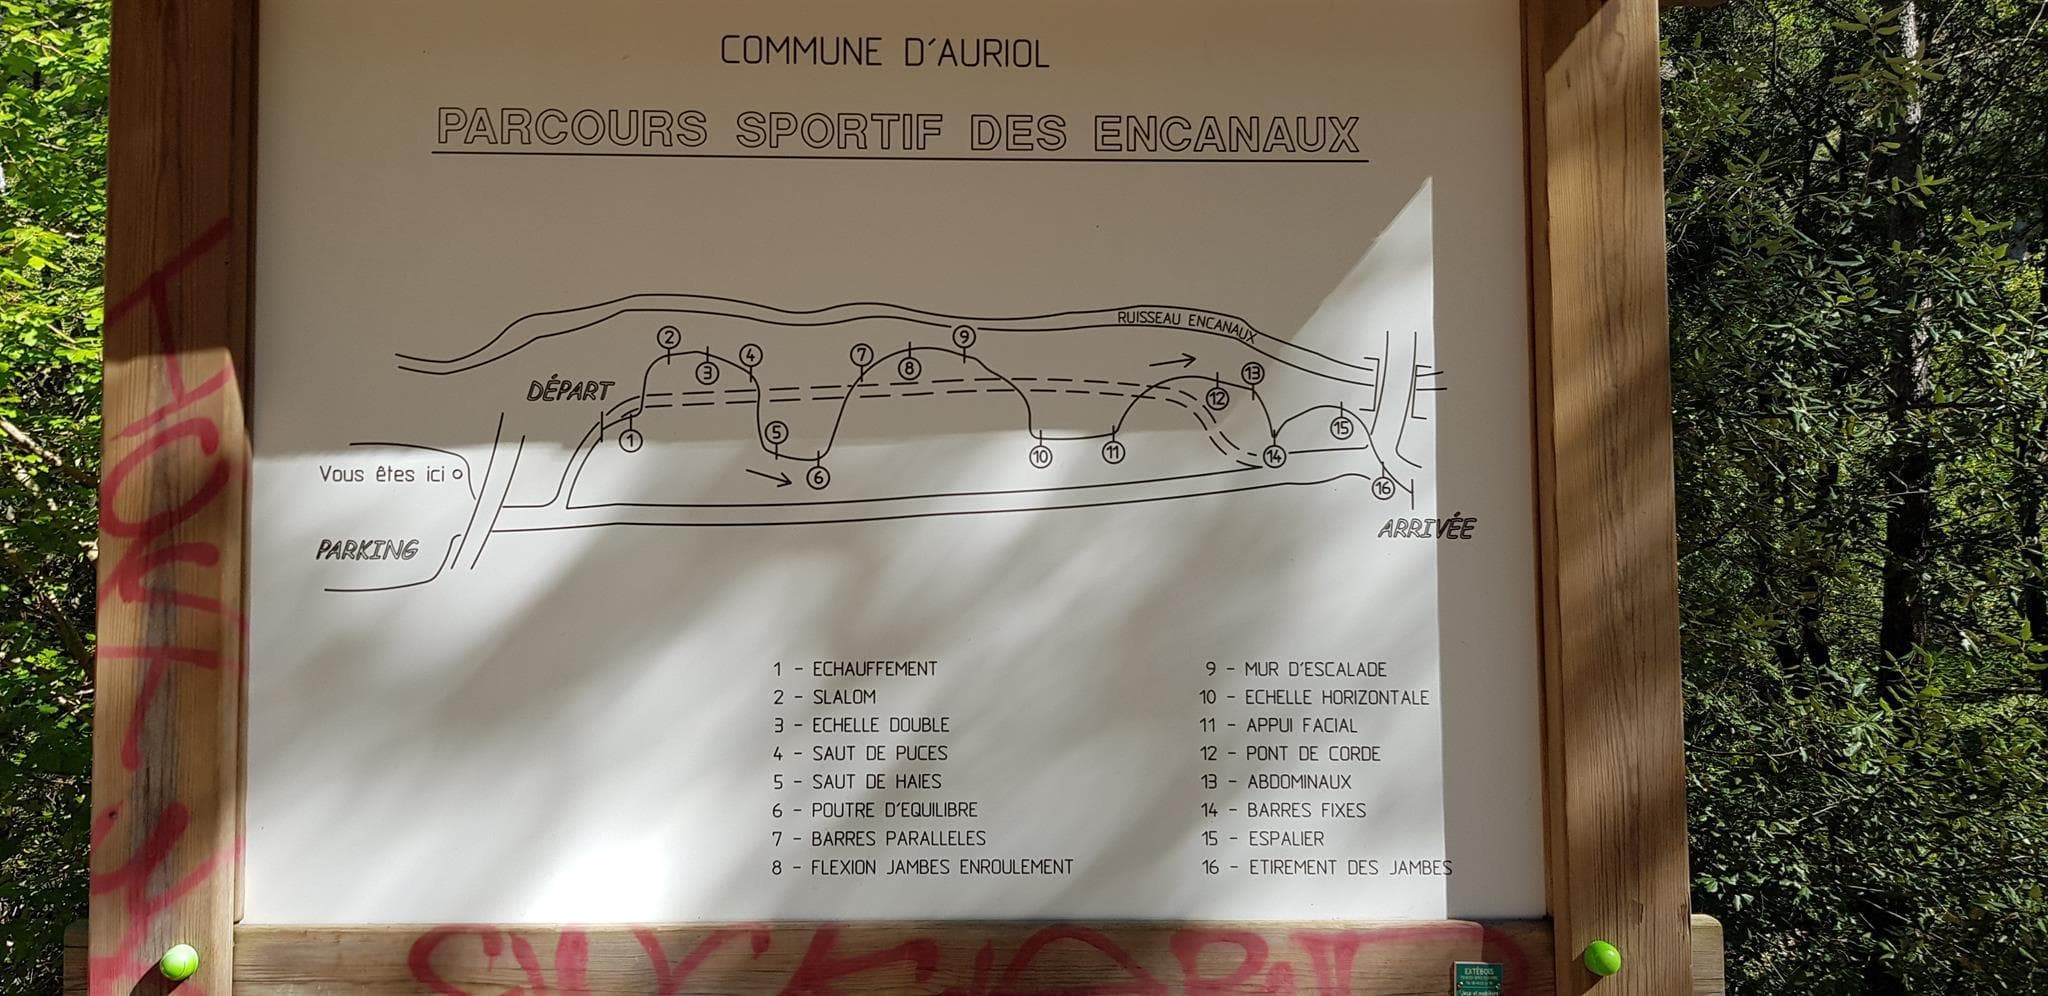 COMMUNE D'AURIOL
PARCOURS SPORTIF DES ENCANAUX
RUISSEAU ENCANAUX
2
9
4
7
13
3
8
DÉPART
12
1
5
15
10
11
14
Vous êtes ici
6
16
ARRIVÉE
PARKING
1 - ECHAUFFEMENT
2 - SLALOM
3 - ECHELLE DOUBLE
4 - SAUT DE PUCES
5 - SAUT DE HAIES
6 - POUTRE D'EQUILIBRE
7 - BARRES PARALLELES
8 - FLEXION JAMBES ENROULEMENT
9 - MUR D'ESCALADE
10 - ECHELLE HORIZONTALE
11 - APPUI FACIAL
12 - PONT DE CORDE
13 - ABDOMINAUX
14 - BARRES FIXES
15 - ESPALIER
16 - ETIREMENT DES JAMBES
EXTÉBOIS